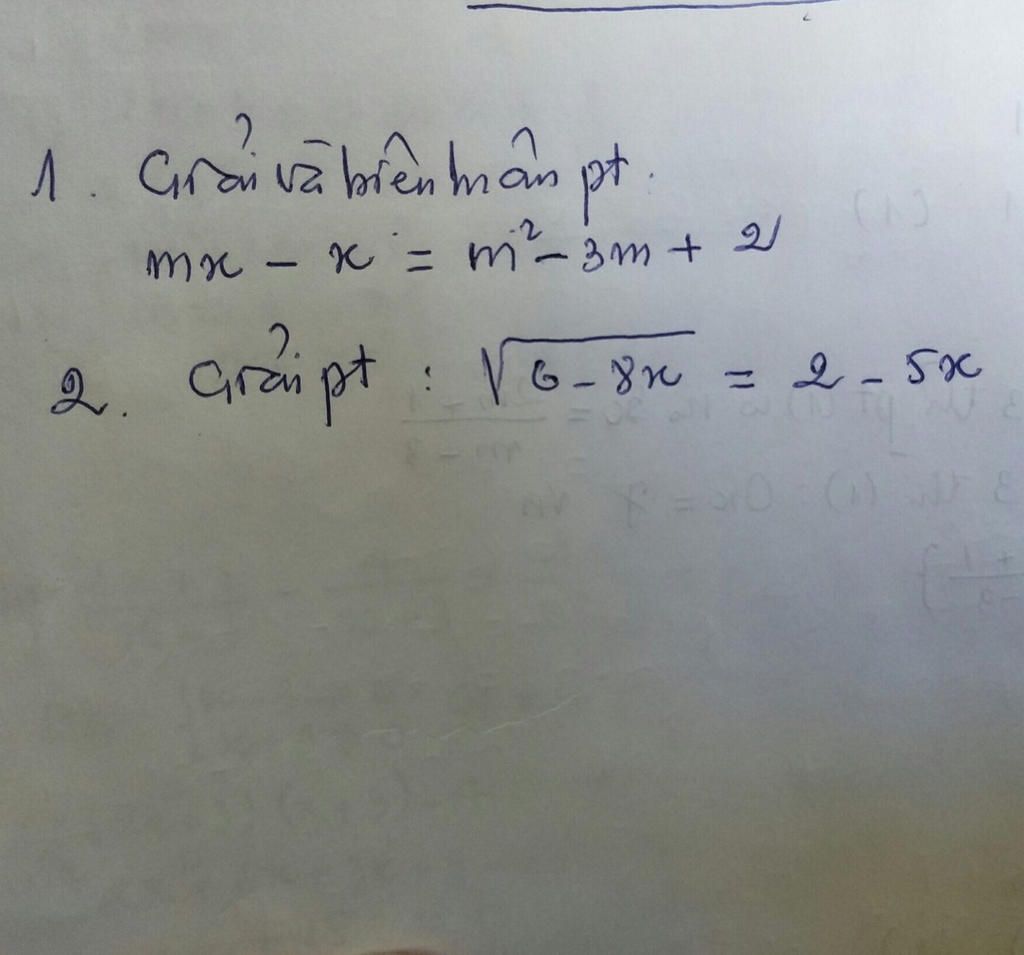 1. Giải và biên luân pt.
mx - x = m² - 3m + 2
2. Giải pt : √(6 - 8x) = 2 - 5x